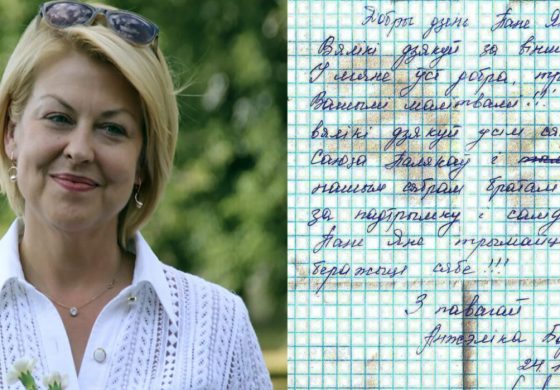 Добры дзень Пане Я
Вялікі дзякуй за він
У мяне усі добра, т
Вашымі малітвамі!!!
вялікі дзякуй усім ся
Саюза Палякау і
нашым сябрам братам
за падтрымку і саму
Пане Яне трымай
беражыце сябе!!!
З павагай
Анжэліка Бо
24.